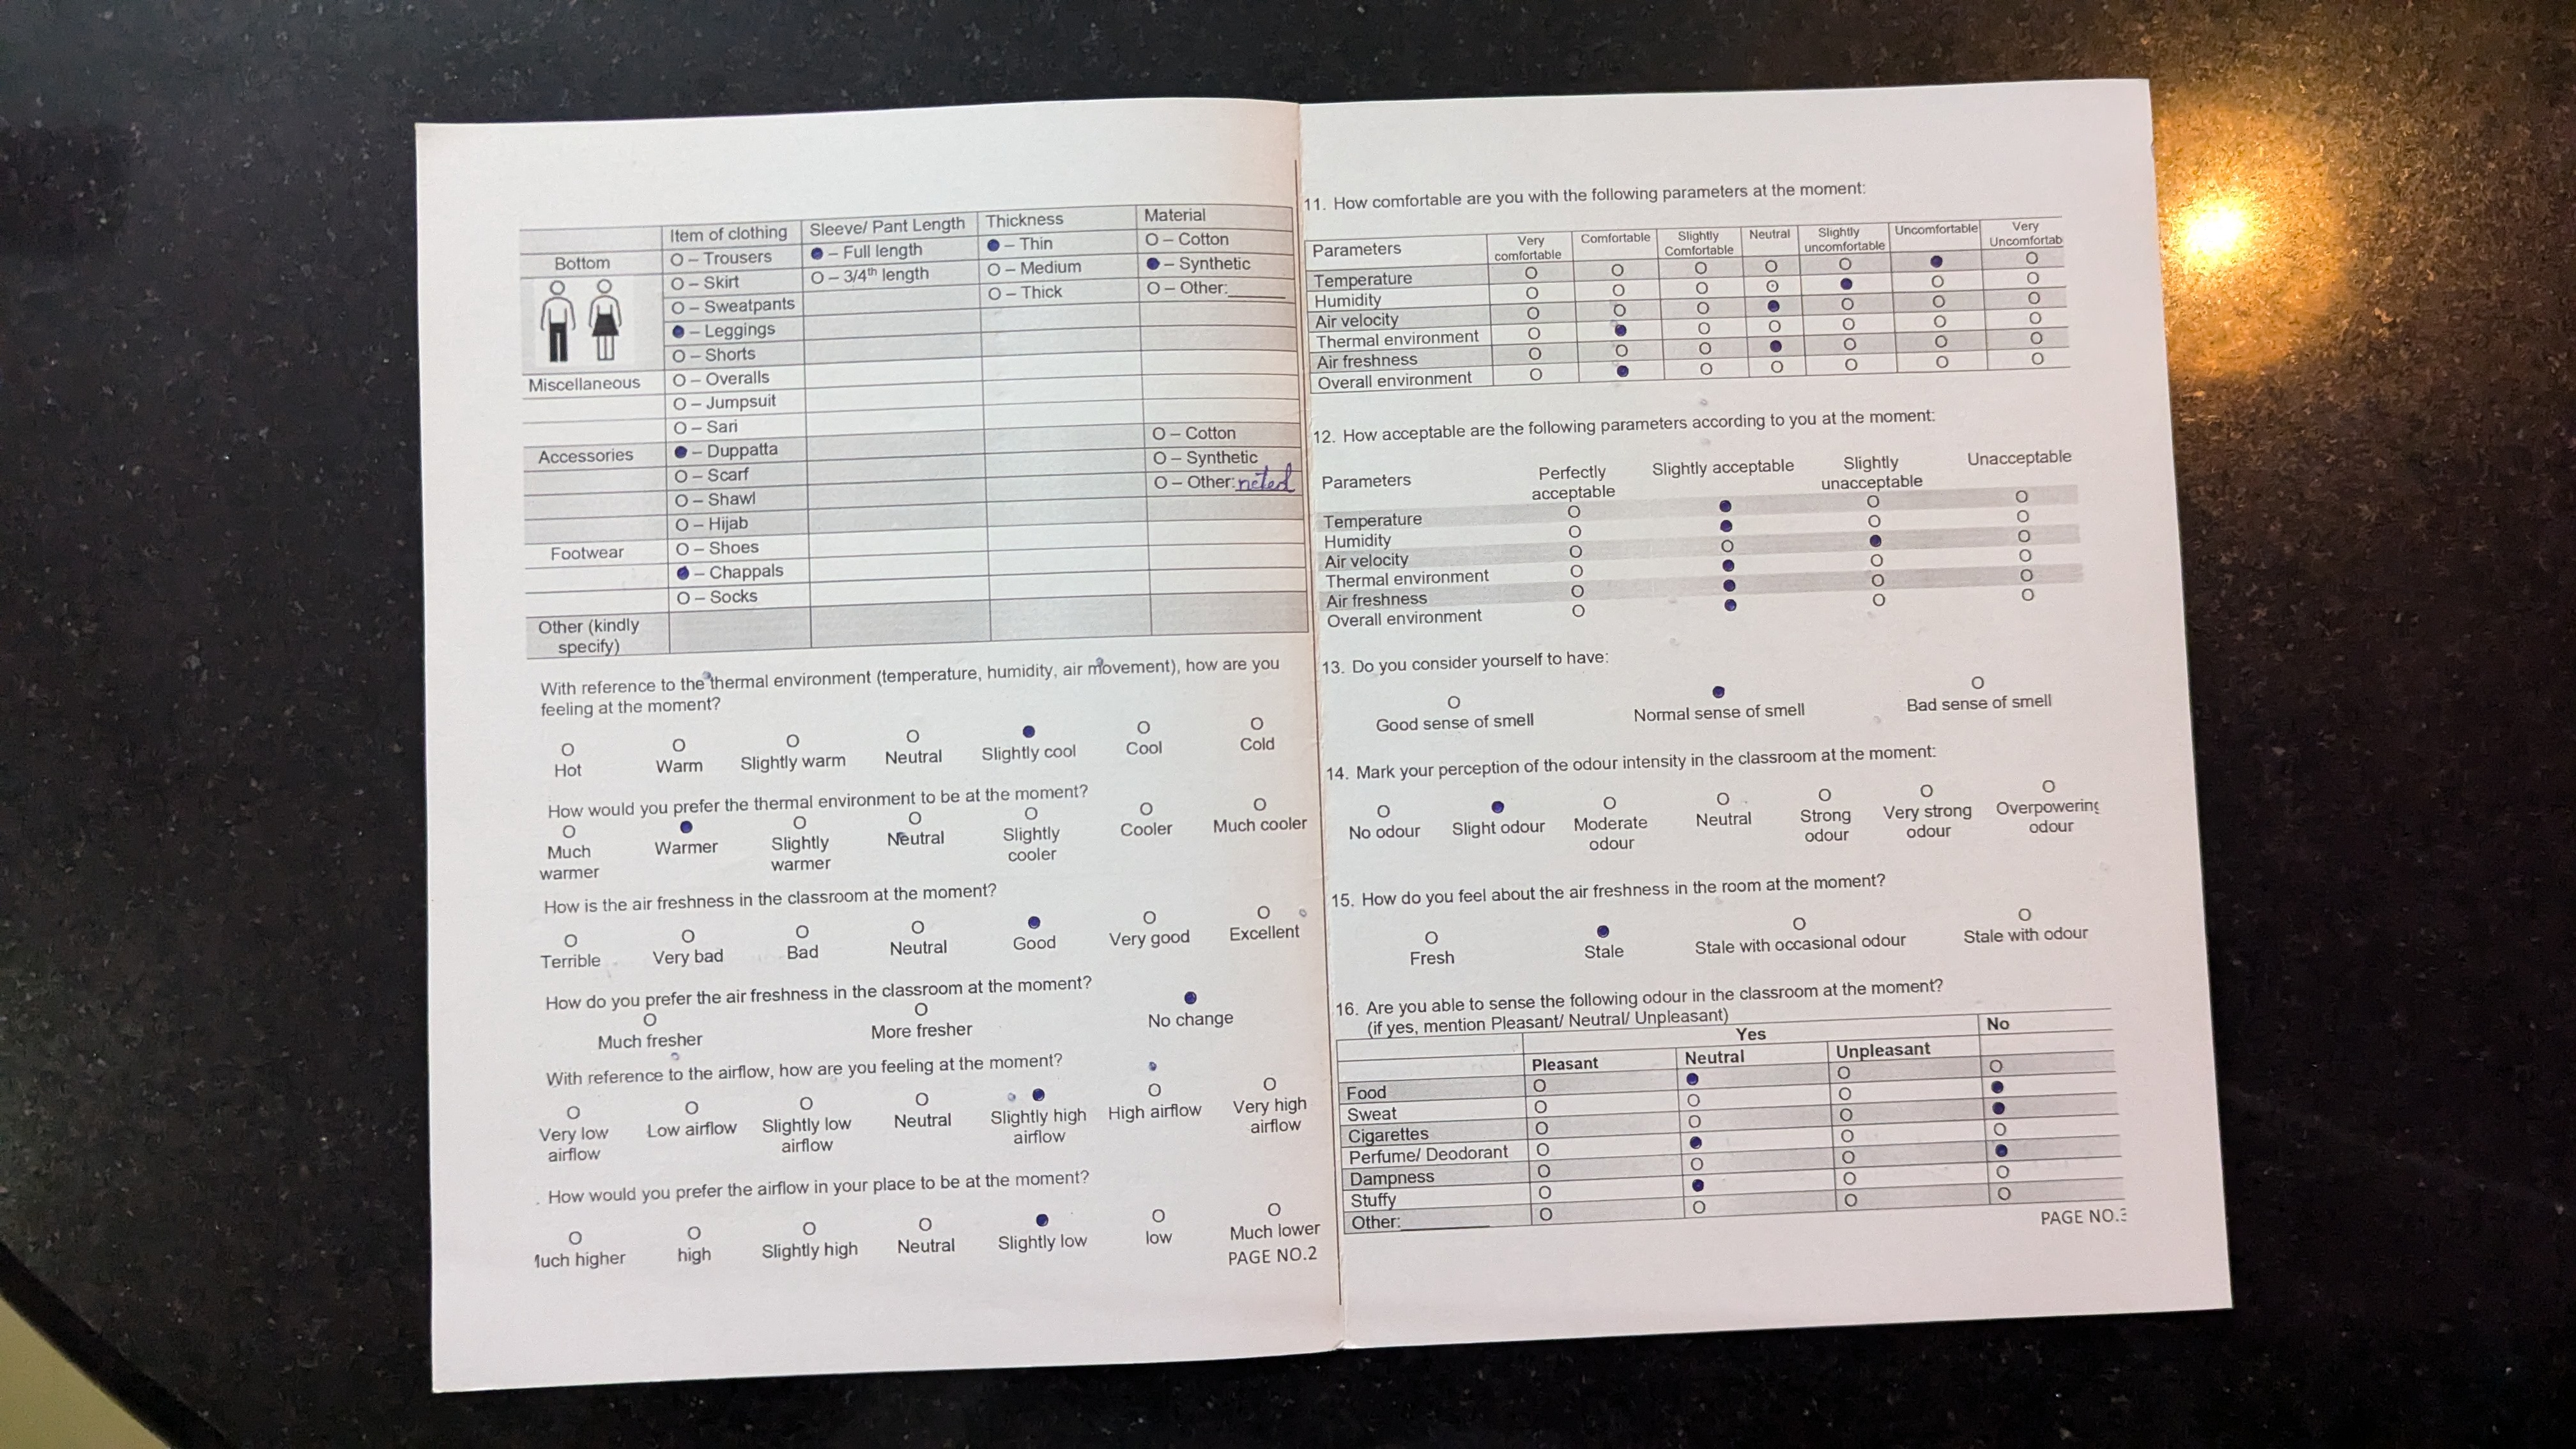 Item of clothing Sleeve/ Pant Length Thickness Material
Bottom O – Trousers ● – Full length ● – Thin O – Cotton
O – Skirt O – 3/4th length O – Medium ● – Synthetic
O – Sweatpants O – Thick O – Other:______
● – Leggings
O – Shorts
Miscellaneous O – Overalls
O – Jumpsuit
O – Sari O – Cotton
Accessories ● – Duppatta O – Synthetic
O – Scarf O – Other: neted
O – Shawl
O – Hijab
Footwear O – Shoes
● – Chappals
O – Socks
Other (kindly
specify)
With reference to the thermal environment (temperature, humidity, air movement), how are you
feeling at the moment?
O O O O ● O O
Hot Warm Slightly warm Neutral Slightly cool Cool Cold
How would you prefer the thermal environment to be at the moment?
O ● O O O O O
Much Warmer Slightly Neutral Slightly Cooler Much cooler
warmer warmer cooler
How is the air freshness in the classroom at the moment?
O O O O ● O O
Terrible Very bad Bad Neutral Good Very good Excellent
How do you prefer the air freshness in the classroom at the moment?
O O ●
Much fresher More fresher No change
With reference to the airflow, how are you feeling at the moment?
O O O O ● O O
Very low Low airflow Slightly low Neutral Slightly high High airflow Very high
airflow airflow airflow airflow
How would you prefer the airflow in your place to be at the moment?
O O O O ● O O
Much higher high Slightly high Neutral Slightly low low Much lower
PAGE NO.2
11. How comfortable are you with the following parameters at the moment:
Parameters Very Comfortable Slightly Neutral Slightly Uncomfortable Very
comfortable Comfortable uncomfortable Uncomfortab
Temperature O O O O O ● O
Humidity O O O O ● O O
Air velocity O O O ● O O O
Thermal environment O ● O O O O O
Air freshness O O O ● O O O
Overall environment O ● O O O O O
12. How acceptable are the following parameters according to you at the moment:
Parameters Perfectly Slightly acceptable Slightly Unacceptable
acceptable unacceptable
Temperature O ● O O
Humidity O ● O O
Air velocity O O ● O
Thermal environment O ● O O
Air freshness O ● O O
Overall environment O ● O O
13. Do you consider yourself to have:
O ● O
Good sense of smell Normal sense of smell Bad sense of smell
14. Mark your perception of the odour intensity in the classroom at the moment:
O ● O O O O O
No odour Slight odour Moderate Neutral Strong Very strong Overpowering
odour odour odour odour
15. How do you feel about the air freshness in the room at the moment?
O ● O O
Fresh Stale Stale with occasional odour Stale with odour
16. Are you able to sense the following odour in the classroom at the moment?
(if yes, mention Pleasant/ Neutral/ Unpleasant)
Yes No
Pleasant Neutral Unpleasant
Food O ● O O
Sweat O O O ●
Cigarettes O O O ●
Perfume/ Deodorant O ● O O
Dampness O O O ●
Stuffy O ● O O
Other:__________ O O O O
PAGE NO.3